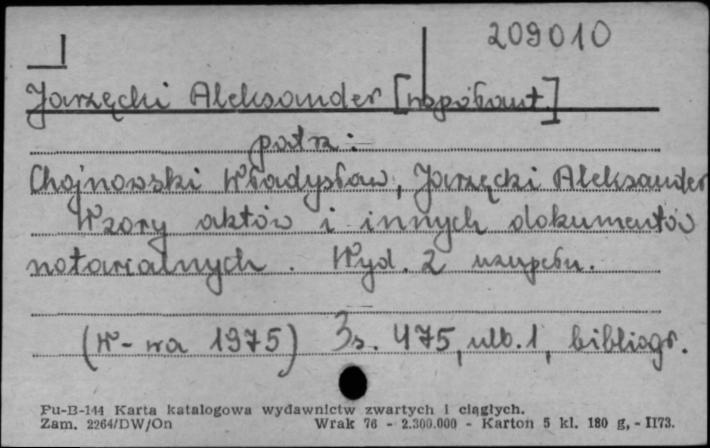 209010
Jarzęcki Aleksander [współaut.]
patrz:
Chojnowski Władysław, Jarzęcki Aleksander
Wzory aktów i innych dokumentów
notarialnych. Wyd. 2 uzupełn.
(W-wa 1975) s. 475, ulb. 1, bibliogr.
Pu-B-144 Karta katalogowa wydawnictw zwartych i ciągłych.
Zam. 2264/DW/On Wrak 76 - 2.300.000 - Karton 5 kl. 180 g, - II73.